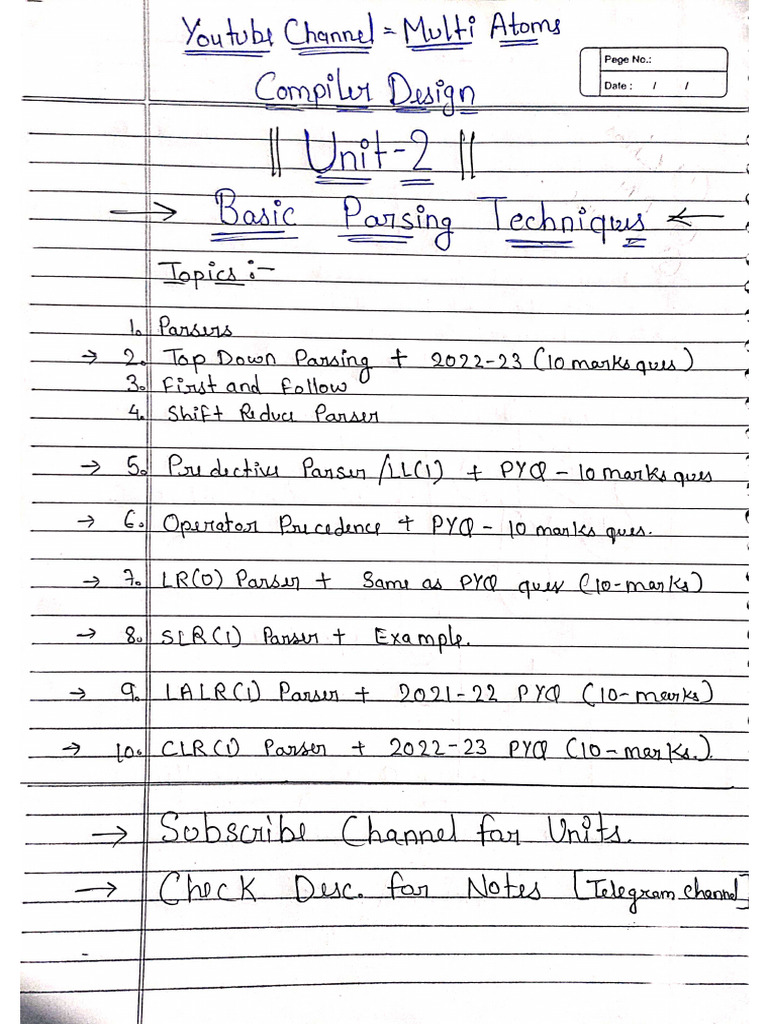 Youtube Channel = Multi Atoms
Pege No.:
Date : / /
Compiler Design
|| Unit-2 ||
→ Basic Parsing Techniques ←
Topics :-
1. Parsers
→ 2. Top Down Parsing + 2022-23 (10 marks ques)
3. First and Follow
4. Shift Reduce Parser
→ 5. Predective Parser /LL(1) + PYQ - 10 marks ques
→ 6. Operator Precedence + PYQ - 10 marks ques.
→ 7. LR(0) Parser + Same as PYQ ques (10-marks)
→ 8. SLR(1) Parser + Example.
→ 9. LALR(1) Parser + 2021-22 PYQ (10-marks)
→ 10. CLR(1) Parser + 2022-23 PYQ (10-marks.).
→ Subscribe Channel for Units.
→ Check Desc. for Notes [Telegram channel]